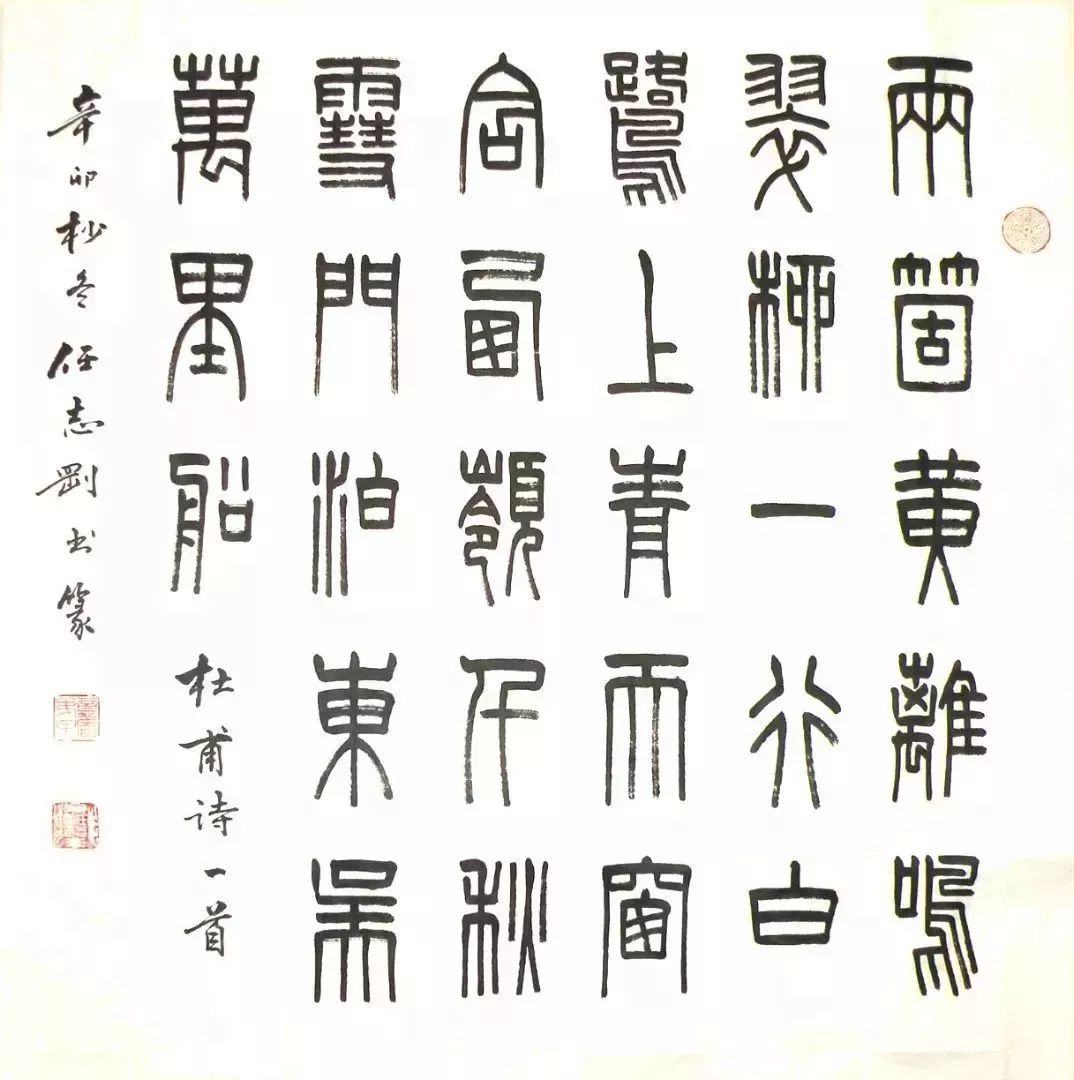 兩箇黃離鳴
翠柳一行白
鷺上青天窗
含西嶺千秋
雪門泊東吳
萬里船 杜甫诗一首
辛卯杪冬任志剛书篆